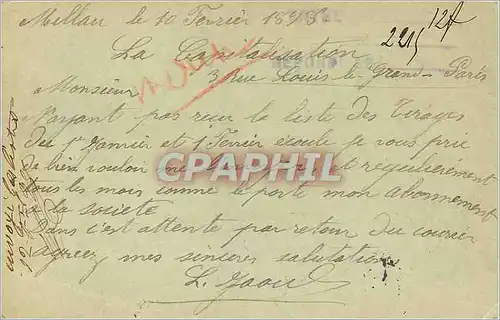 Millau le 10 Fevrier 1898
2215 12f
La Capitalisation
3 Rue Louis le Grand - Paris
Monsieur
N'ayant pas reçu la liste des Tirages
du 1er Janvier et 1 Fevrier écoulé je vous prie
de bien vouloir me l'envoyer et regulièrement
tous les mois comme le porte mon abonnement
a la societe
Dans c'est attente par retour du courrier
agreez mes sincères salutations
L.
CPAPHIL